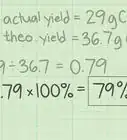 actual yield = 29g C
theo. yield = 36.7g
9 ÷ 36.7 = 0.79
.79 x 100% = 79%